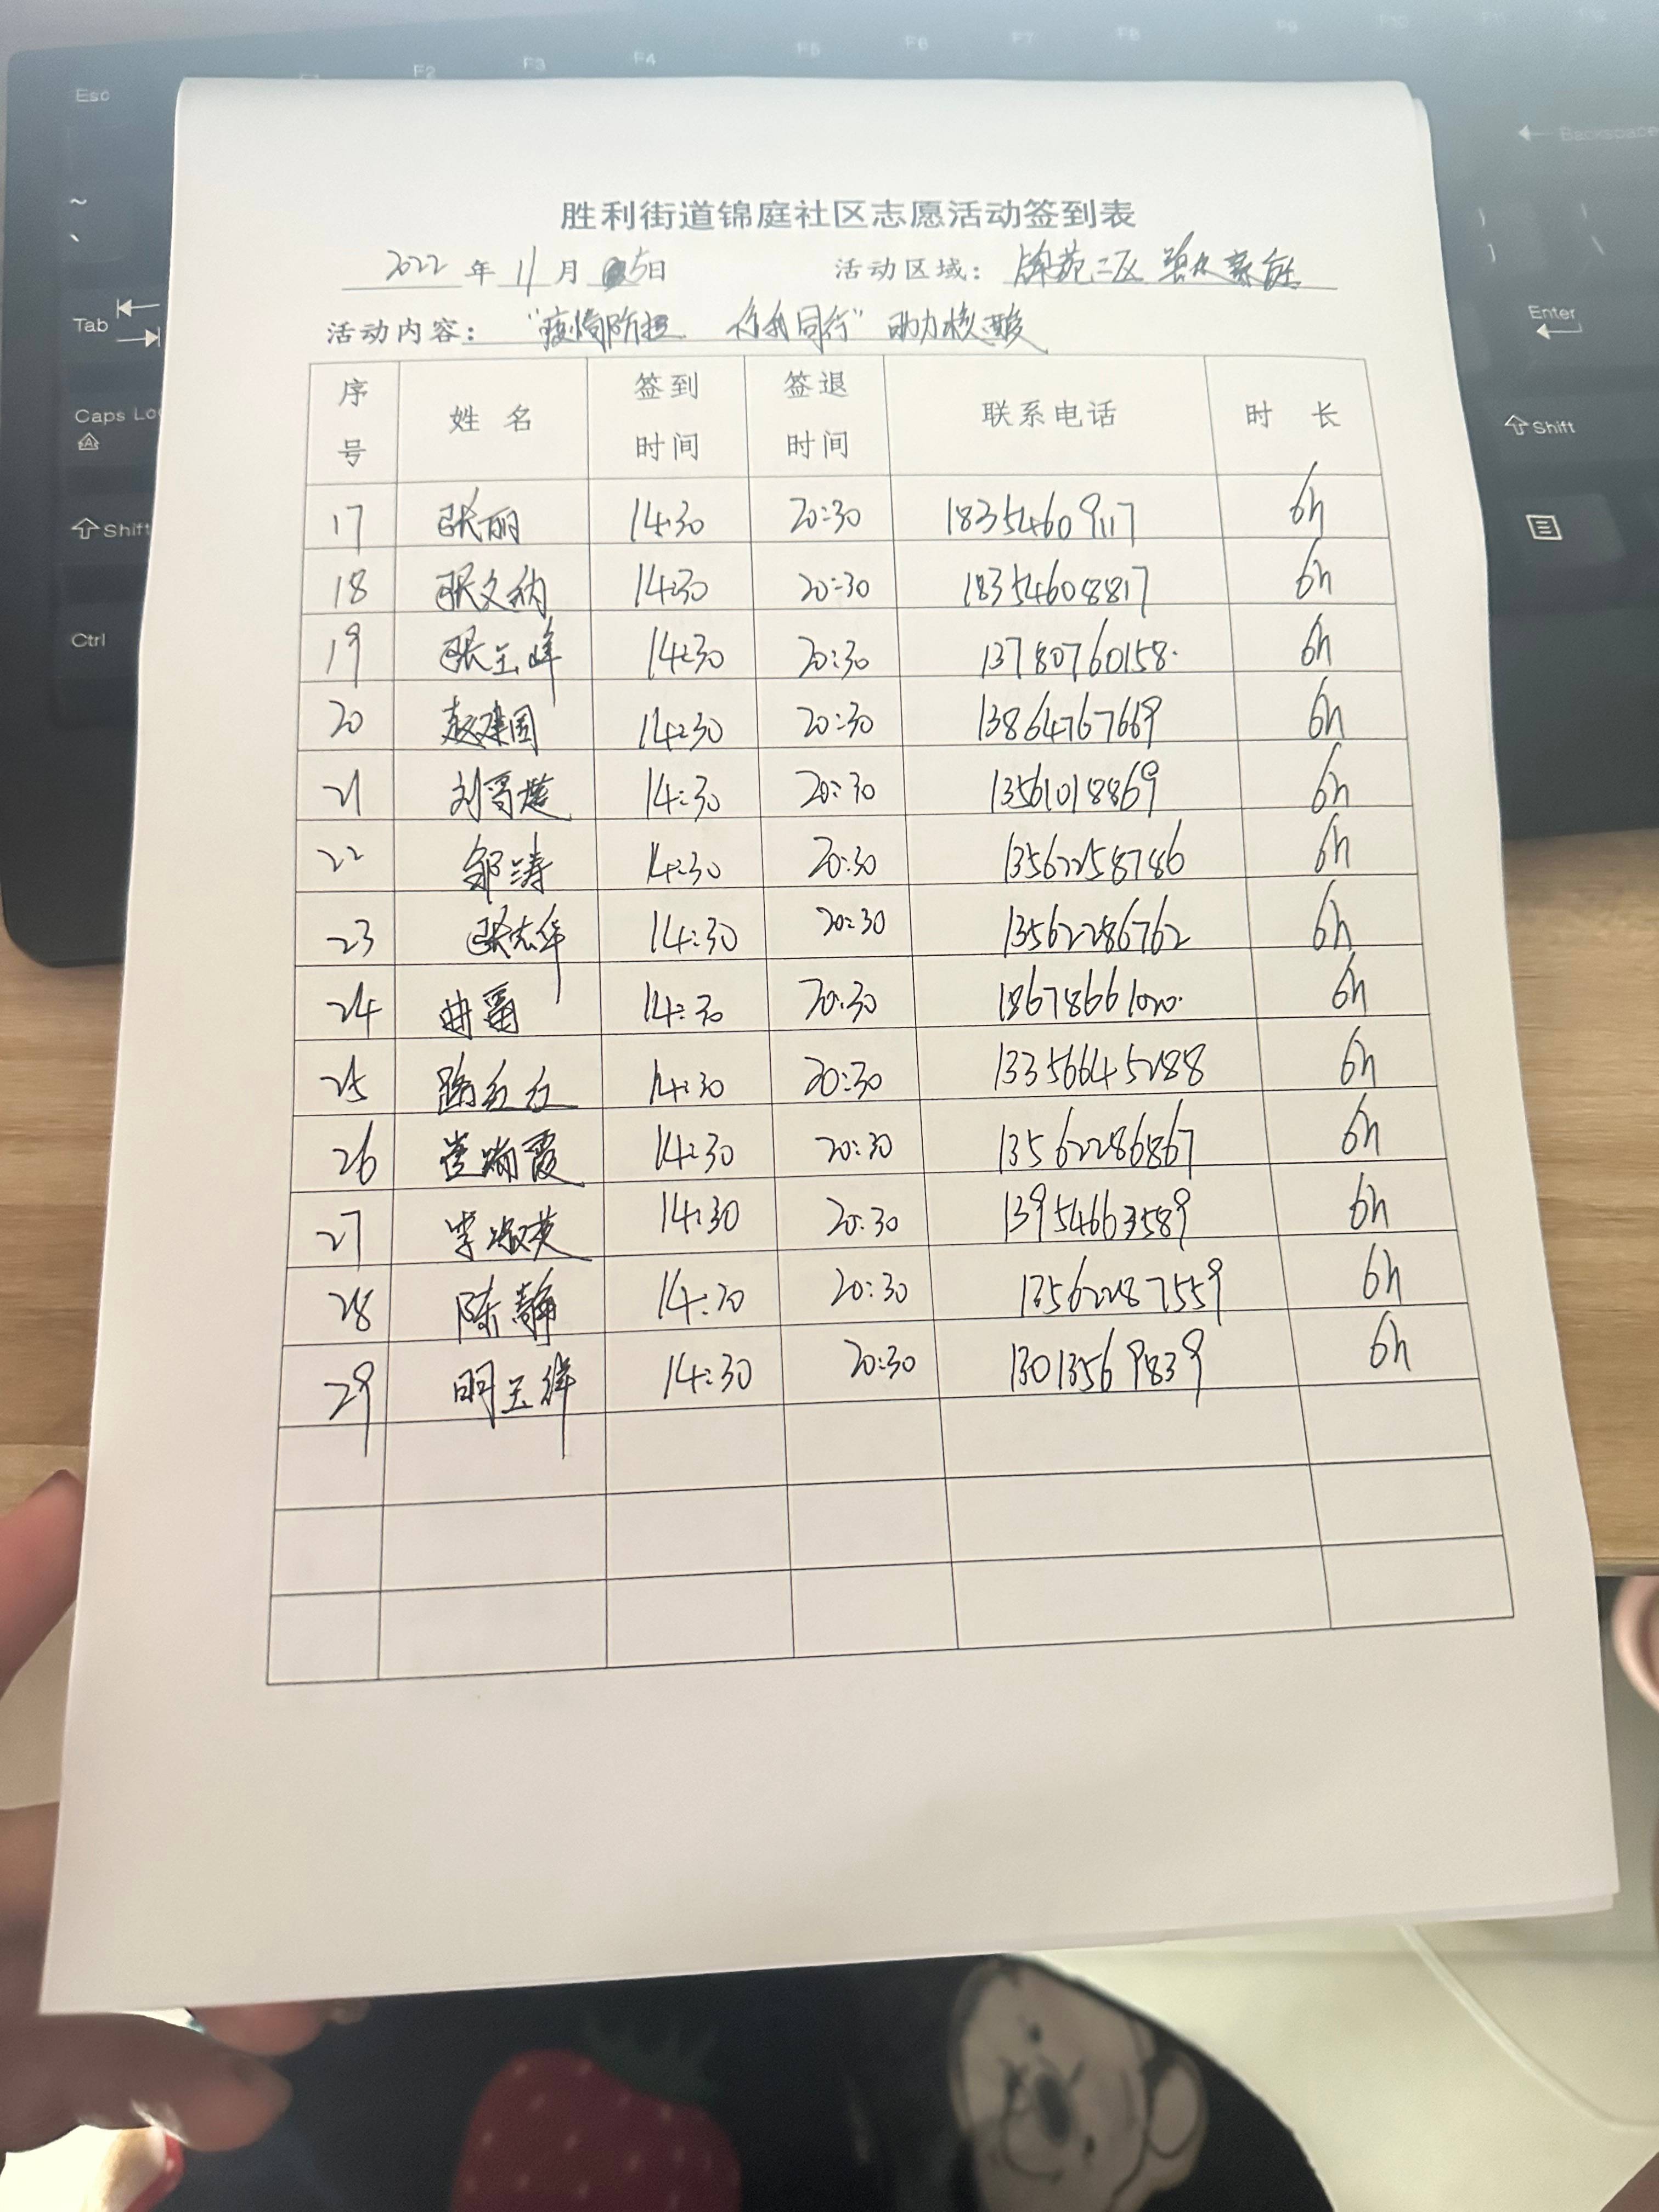 Esc
F2
F3
F4
F5
F6
F7
F8
F9
F10
F11
Backspace
Tab
Caps Lo
Shift
Ctrl
Enter
Shift
胜利街道锦庭社区志愿活动签到表
2022 年 11 月 5日 活动区域: 锦苑二区
活动内容: “疫情防控 你我同行” 助力核酸
序号 姓名 签到时间 签退时间 联系电话 时长
17 张丽 14:30 20:30 18354609117 6h
18 张文纳 14:30 20:30 18354608817 6h
19 张玉峰 14:30 20:30 13780760158 6h
20 赵建国 14:30 20:30 13864767669 6h
21 刘 14:30 20:30 13561018869 6h
22 邹涛 14:30 20:30 13562258786 6h
23 张志华 14:30 20:30 13562286762 6h
24 14:30 20:30 18678661020 6h
25 14:30 20:30 13356645288 6h
26 霞 14:30 20:30 13562286867 6h
27 李淑英 14:30 20:30 13954663589 6h
28 陈静 14:30 20:30 13562287559 6h
29 明玉 14:30 20:30 13013569839 6h